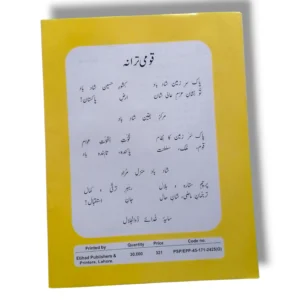 قومی ترانہ
پاک سر زمین شاد باد کشور حسین شاد باد
تو نشان عزم عالی شان ارض پاکستان!
مرکز یقین شاد باد
پاک سر زمین کا نظام قوت اخوت عوام
قوم، ملک، سلطنت پائندہ تابندہ باد
شاد باد منزل مراد
پرچم ستارہ و ہلال رہبر ترقی و کمال
ترجمان ماضی، شان حال جان استقبال!
سایۂ خدائے ذوالجلال
Printed by Quantity Price Code no:
Publishers & Printers, Lahore. PSP/EPP